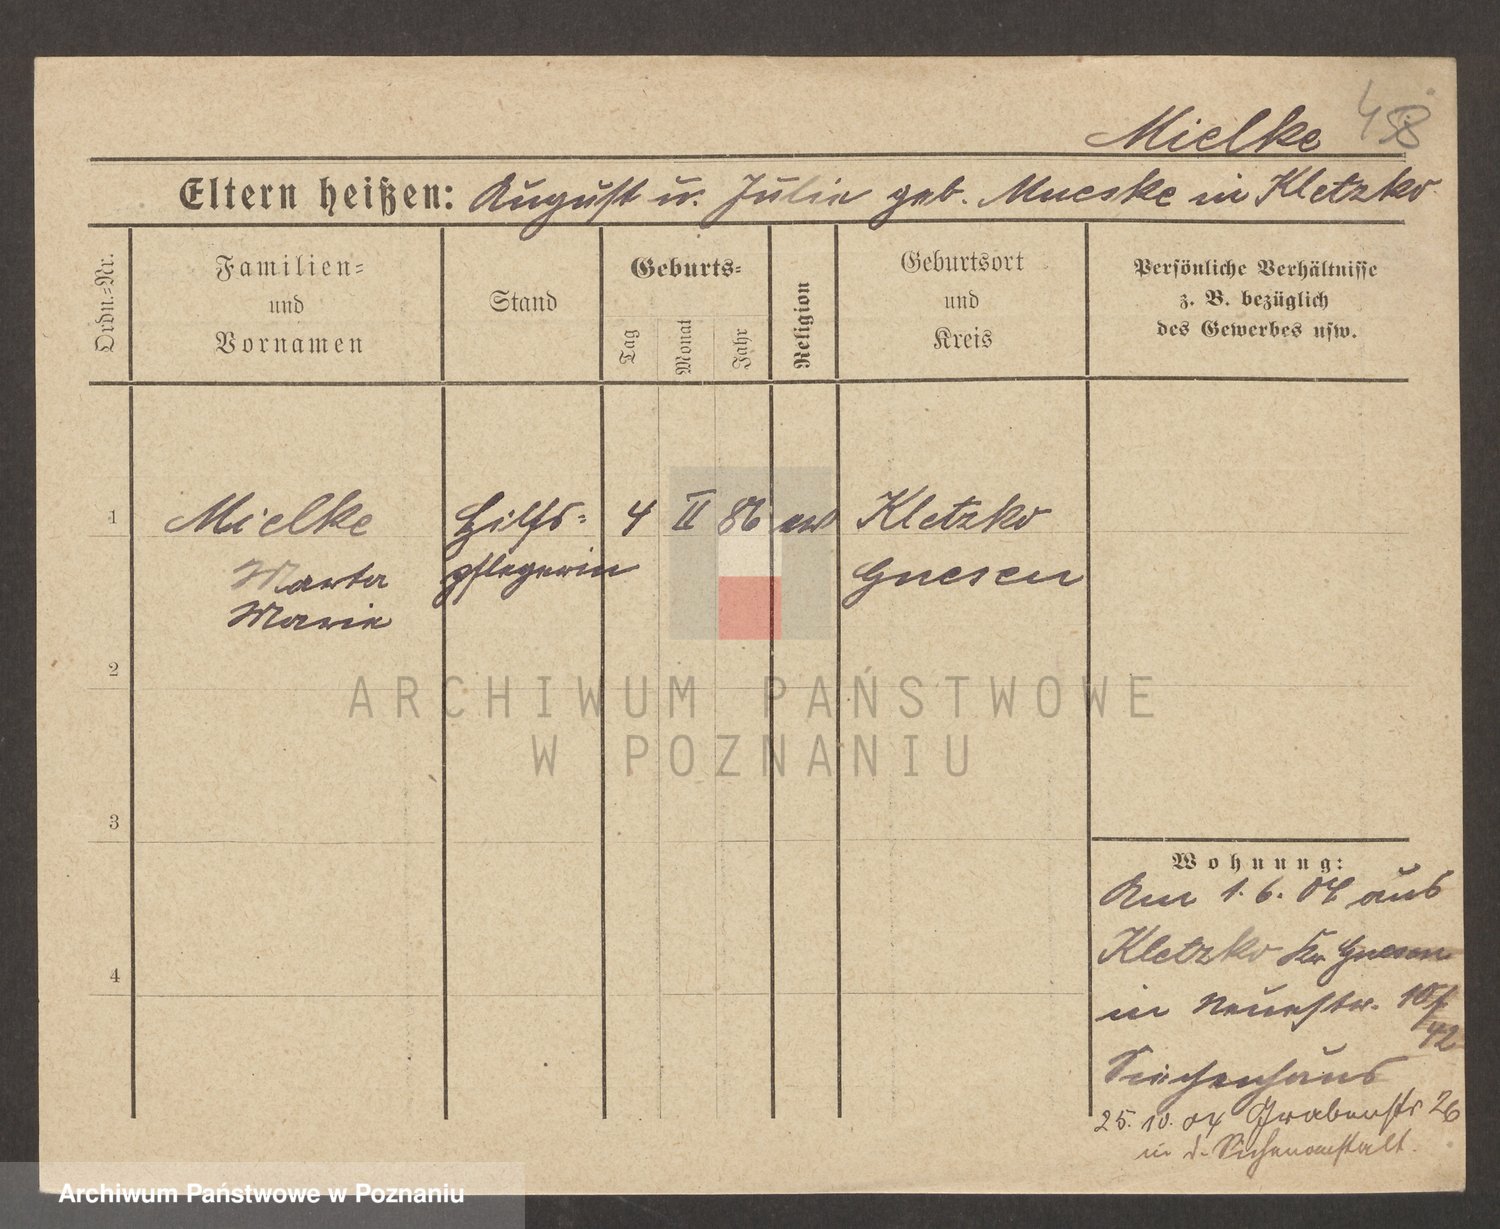 458
Mielke
Eltern heißen: August u. Julie geb. Mueske in Kletzko
Ordn.-Nr.
Familien-
und
Vornamen
Stand
Geburts-
Tag
Monat
Jahr
Religion
Geburtsort
und
Kreis
Persönliche Verhältnisse
z. B. bezüglich
des Gewerbes usw.
1 Mielke Hilfs- 4 II 86 ev Kletzko
Marta pflegerin Gnesen
Marie
2
ARCHIWUM PAŃSTWOWE
W POZNANIU
3
Wohnung:
Am 1. 6. 04 aus
Kletzko Kr Gnesen
4
in Neuestr. 10/
42
Siechenhaus
25. 10. 04 Grabenstr 26
in d. Siechenanstalt.
Archiwum Państwowe w Poznaniu